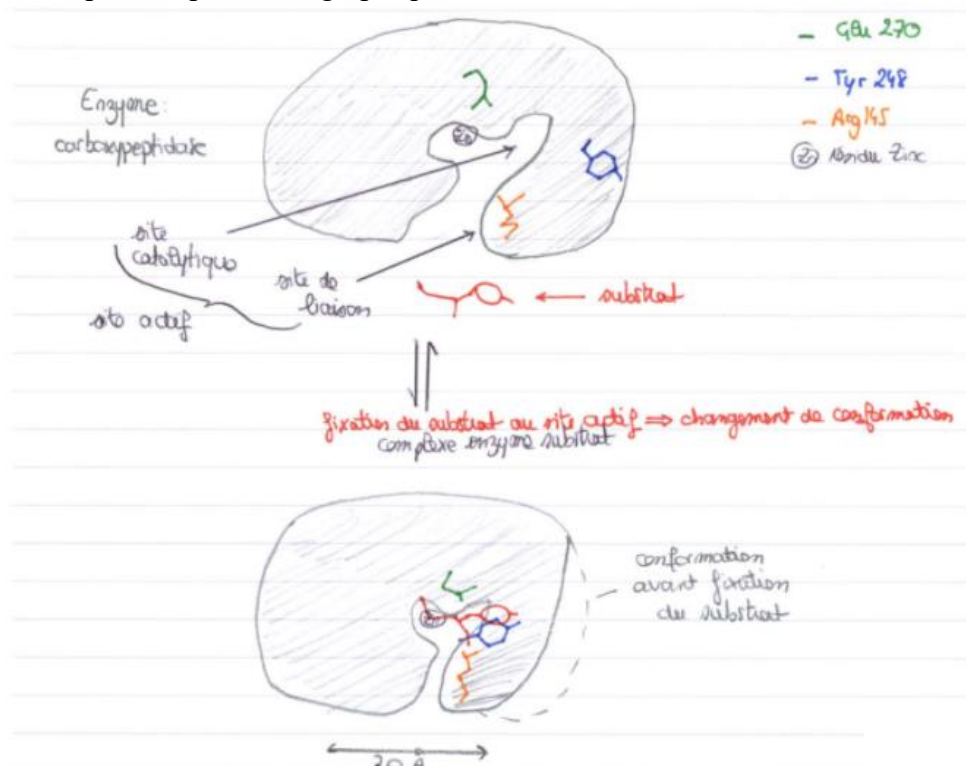 Glu 270
Tyr 248
Arg 145
Zn Résidu Zinc
Enzyme:
carboxypeptidase
site
catalytique
site de
liaison
site actif
substrat
fixation du substrat au site actif ⇒ changement de conformation
complexe enzyme substrat
conformation
avant fixation
du substrat
Zn